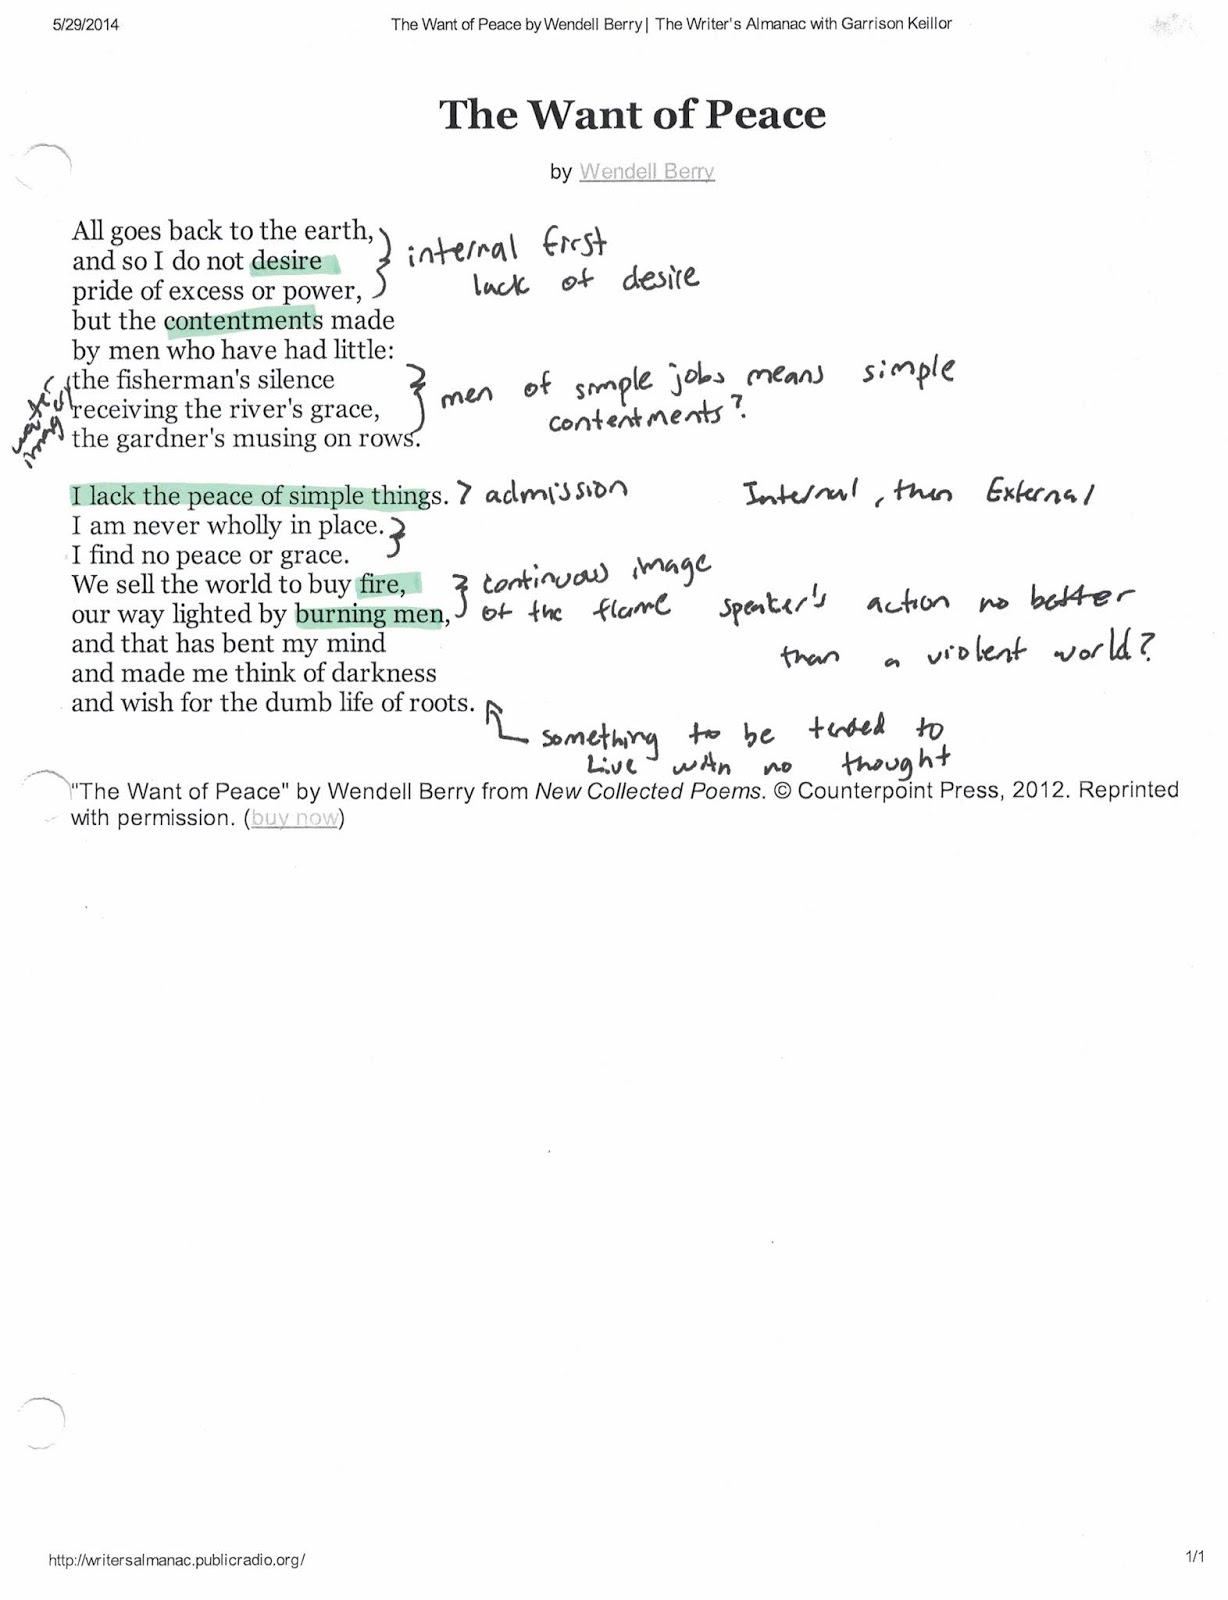 5/29/2014 The Want of Peace by Wendell Berry | The Writer's Almanac with Garrison Keillor
The Want of Peace
by Wendell Berry
All goes back to the earth,
and so I do not desire
pride of excess or power,
internal first
lack of desire
but the contentments made
by men who have had little:
the fisherman's silence
receiving the river's grace,
the gardner's musing on rows.
water
imag
men of simple jobs means simple
contentments?
I lack the peace of simple things. admission
Internal, then External
I am never wholly in place.
I find no peace or grace.
We sell the world to buy fire,
our way lighted by burning men,
continuous image
of the flame
speaker's action no better
than a violent world?
and that has bent my mind
and made me think of darkness
and wish for the dumb life of roots.
something to be tended to
Live with no thought
"The Want of Peace" by Wendell Berry from New Collected Poems. © Counterpoint Press, 2012. Reprinted
with permission. (buy now)
http://writersalmanac.publicradio.org/ 1/1